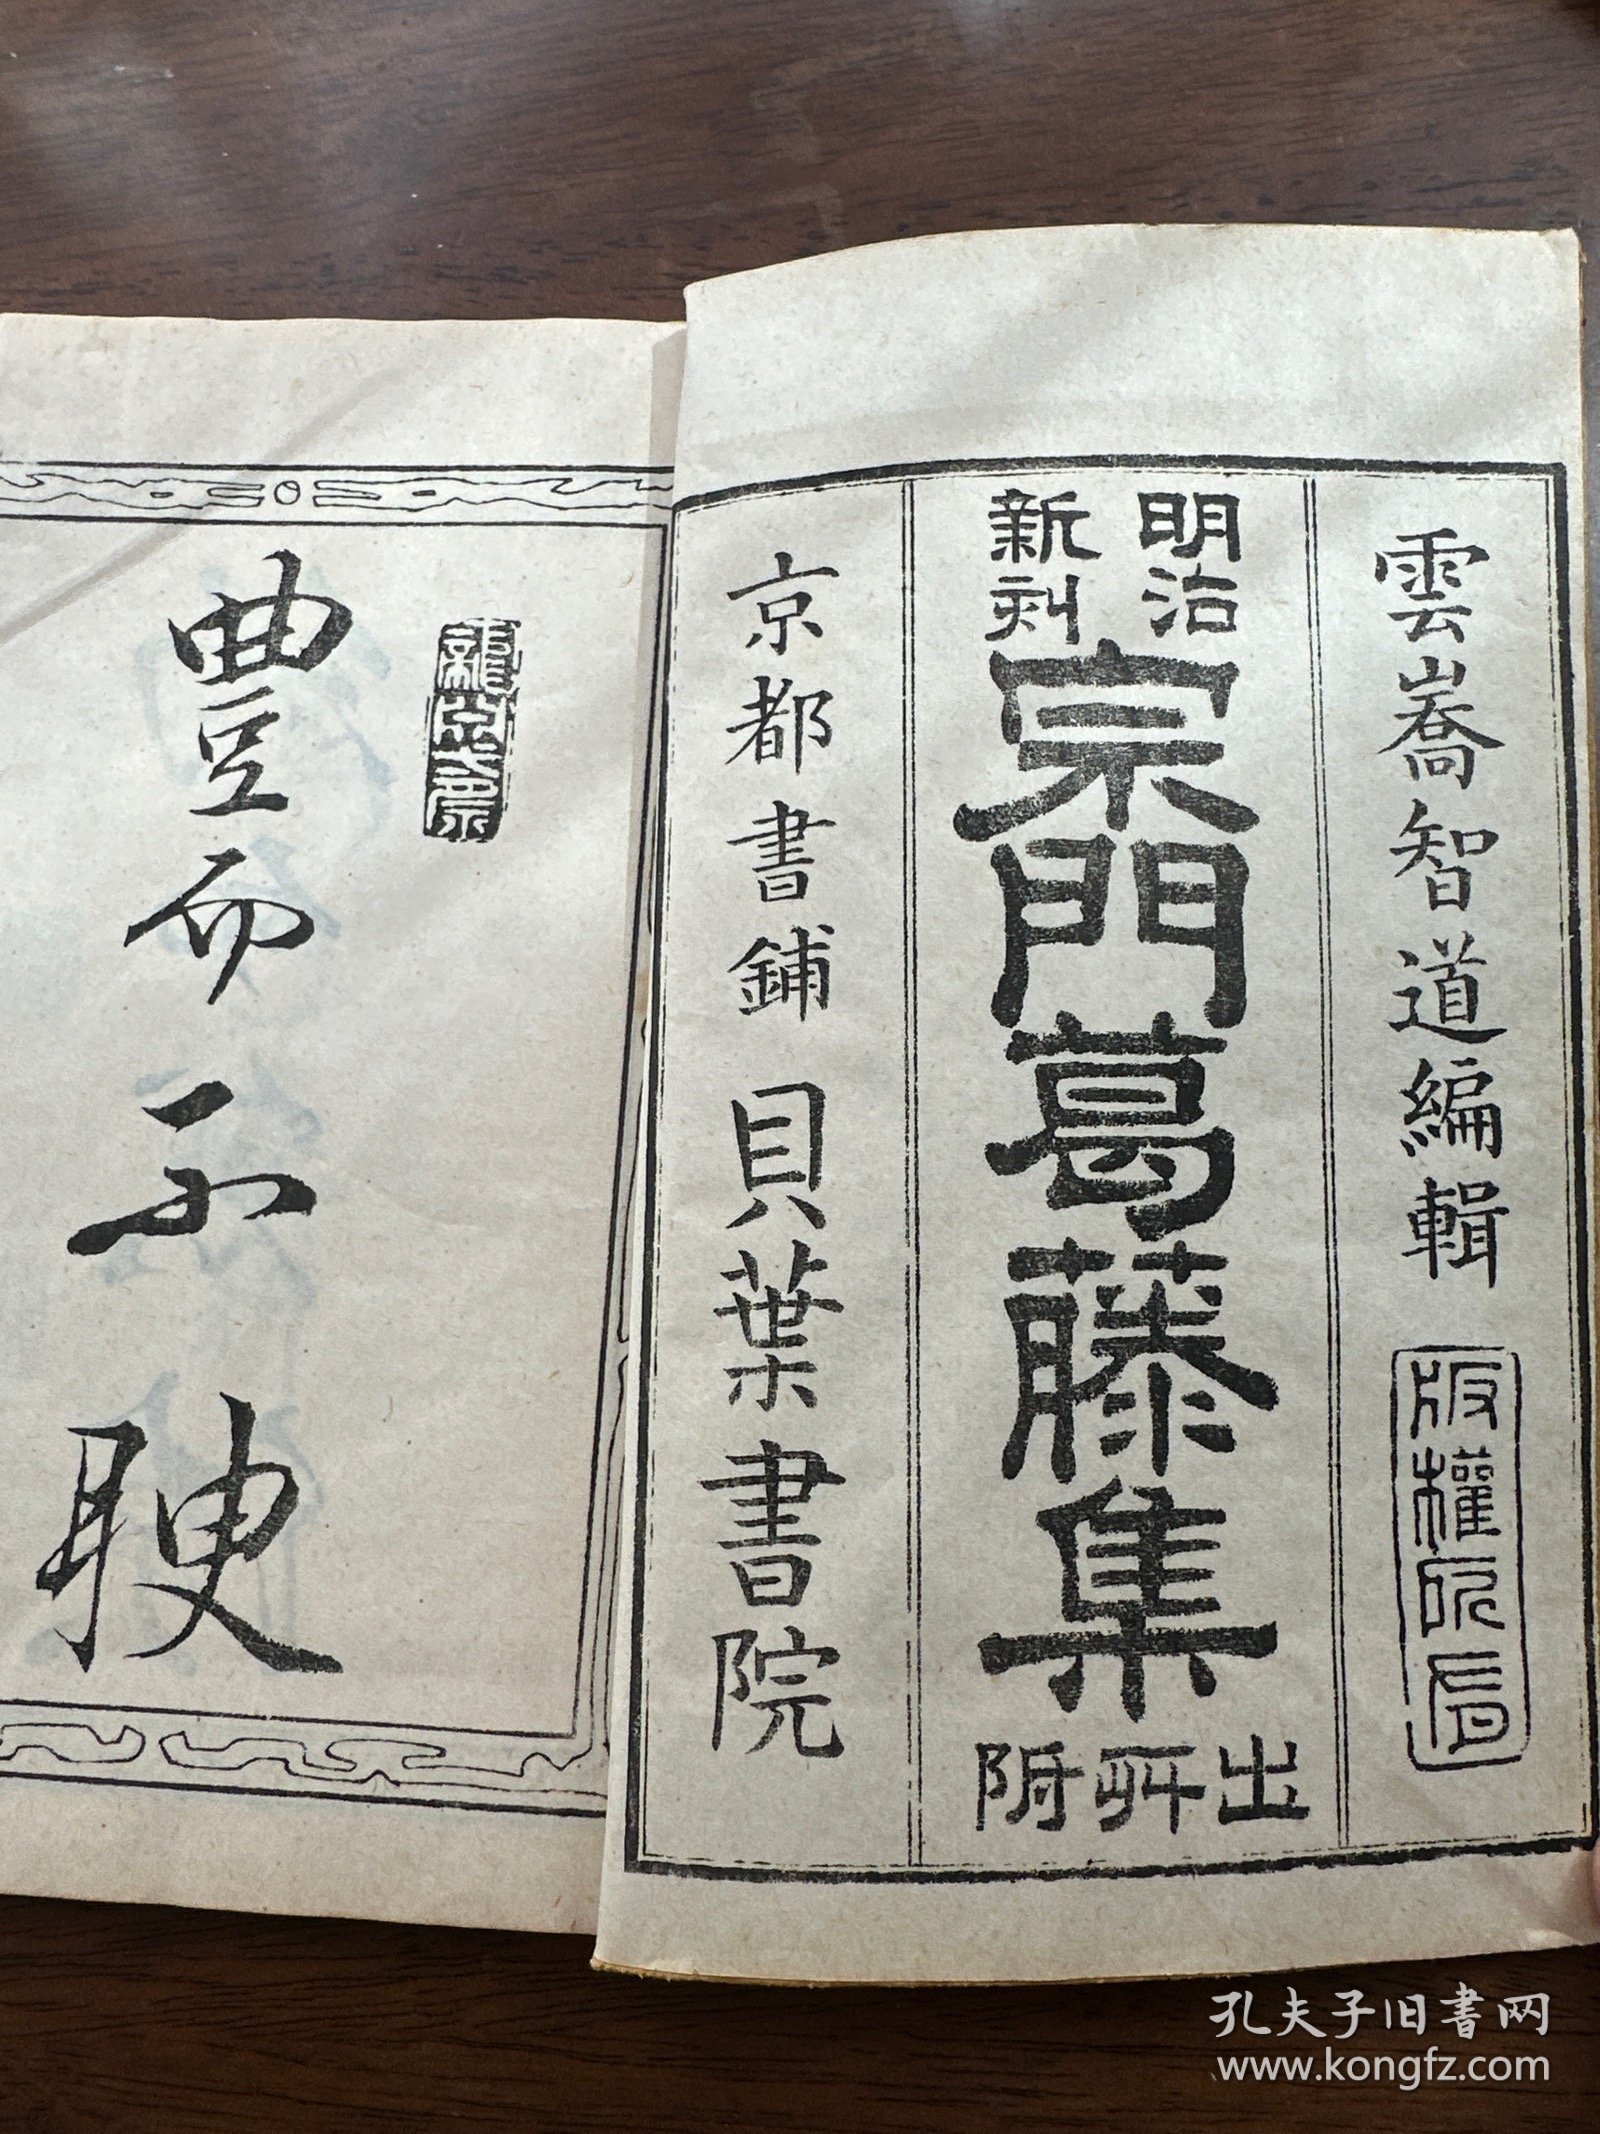 雲嶠智道編輯
版權所有
明治
新刻
宗門葛藤集
出所附
京都書鋪 貝葉書院
豊而不腴
孔夫子旧书网
www.kongfz.com